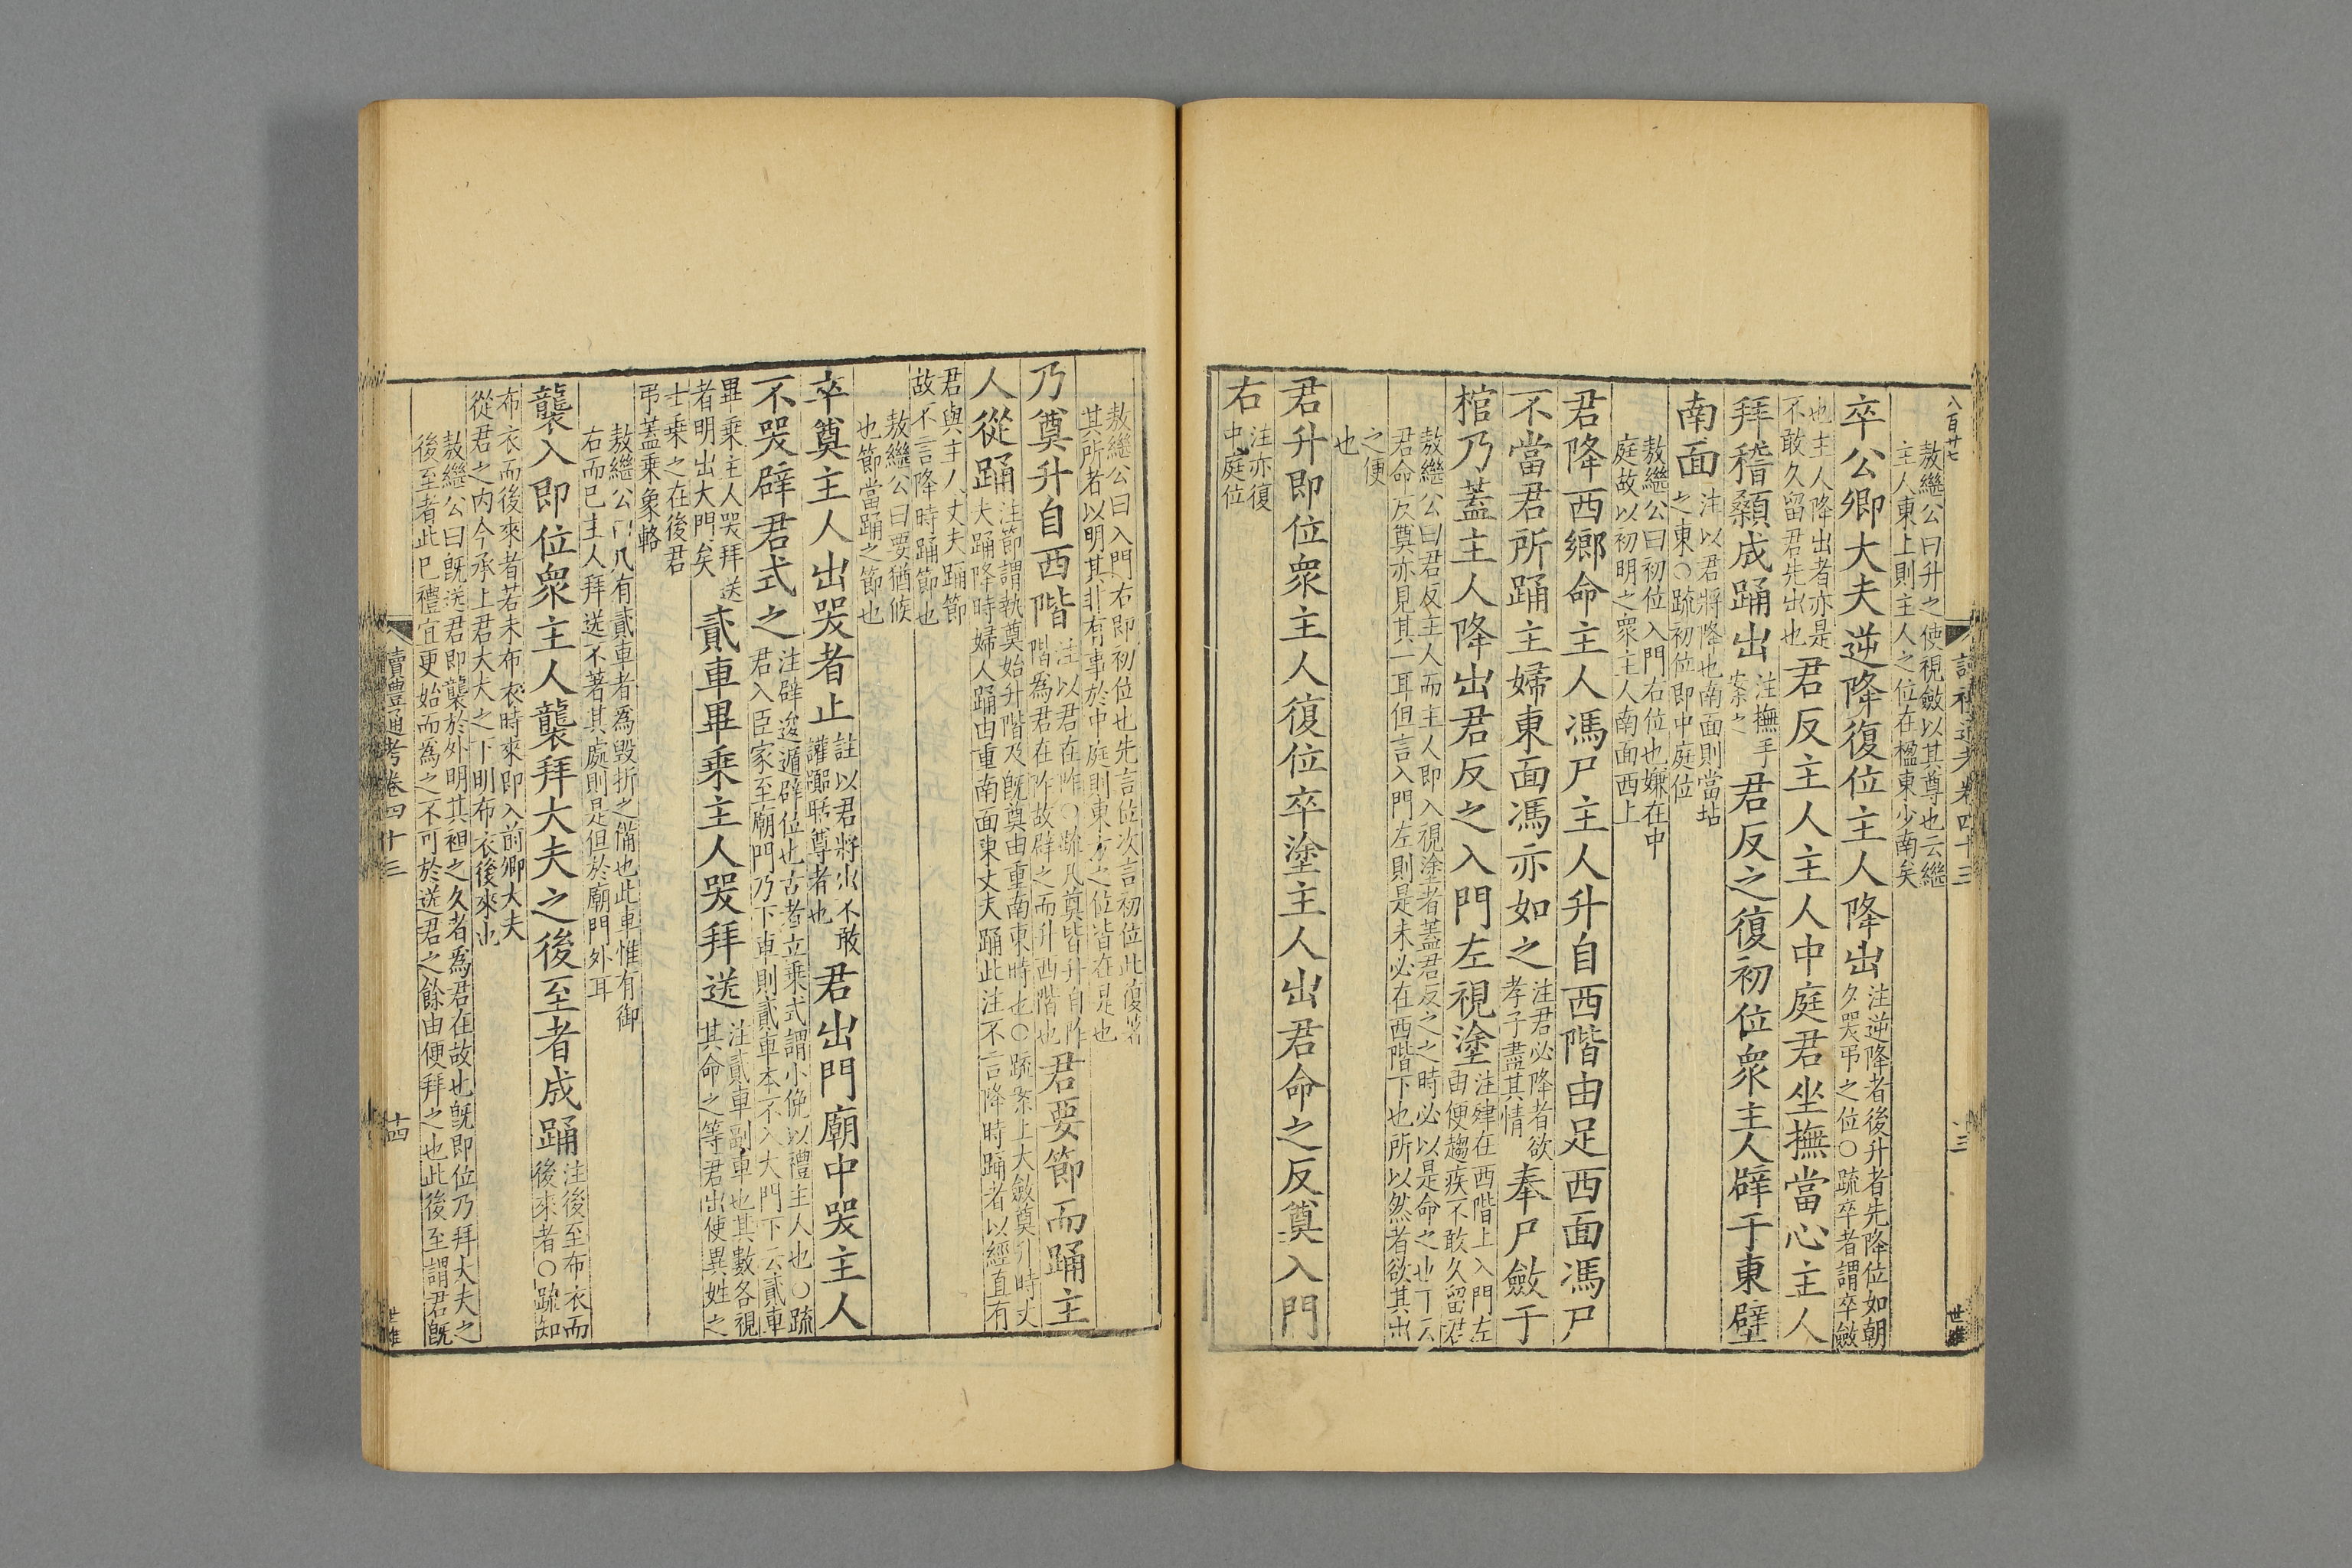 八百廿七
敖繼公曰升之使視斂以其尊也云繼
主人東上則主人之位在楹東少南矣
卒公卿大夫逆降復位主人降出
注逆降者後升者先降位如朝
夕哭弔之位○疏卒者謂卒斂
也主人降出者亦是
不敢久留君先出也
君反主人主人中庭君坐撫當心主人
拜稽顙成踊出
注撫手
案之
君反之復初位衆主人辟于東壁
南面
注以君將降也南面則當坫
之東○疏初位即中庭位
敖繼公曰初位入門右位也嫌在中
庭故以初明之衆主人南面西上
君降西鄉命主人馮尸主人升自西階由足西面馮尸
不當君所踊主婦東面馮亦如之
注君必降者欲
孝子盡其情
奉尸斂于
棺乃蓋主人降出君反之入門左視塗
注肂在西階上入門左
由便趨疾不敢久留君
敖繼公曰君反主人而主人即入視塗者蓋君反之之時必以是命之也下云
君命反奠亦見其一耳但言入門左則是未必在西階下也所以然者欲其出
之便
也
君升即位衆主人復位卒塗主人出君命之反奠入門
右
注亦復
中庭位
敖繼公曰入門右即初位也先言位次言初位此復著
其所者以明其非有事於中庭則東方之位皆在是也
乃奠升自西階
注以君在阼○疏凡奠皆升自阼
階為君在阼故辟之而升西階也
君要節而踊主
人從踊
注節謂執奠始升階及旣奠由重南東時也○疏案上大斂奠升時丈
夫踊降時婦人踊由重南面東丈夫踊此注不言降時踊者以經直有
君與主人丈夫踊節
故不言降時踊節也
敖繼公曰要猶候
也節當踊之節也
卒奠主人出哭者止
註以君將出不敢
讙嚻聒尊者也
君出門廟中哭主人
不哭辟君式之
注辟逡遁辟位也古者立乘式謂小俛以禮主人也○疏
君入臣家至廟門乃下車則貳車本不入大門下云貳車
畢乘主人哭拜送
者明出大門矣
貳車畢乘主人哭拜送
注貳車副車也其數各視
其命之等君出使異姓之
士乘之在後君
弔蓋乘象輅
敖繼公曰凡有貳車者爲毀折之備也此車惟有御
右而已主人拜送不著其處則是但於廟門外耳
襲入即位衆主人襲拜大夫之後至者成踊
注後至布衣而
後來者○疏知
布衣而後來者若未布衣時來即入前卿大夫
從君之内今承上君大夫之下明布衣後來也
敖繼公曰旣送君即襲於外明其袒之久者爲君在故也旣即位乃拜大夫之
後至者此已禮宜更始而為之不可於送君之餘由便拜之也此後至謂君旣
讀禮通考卷四十三
十四